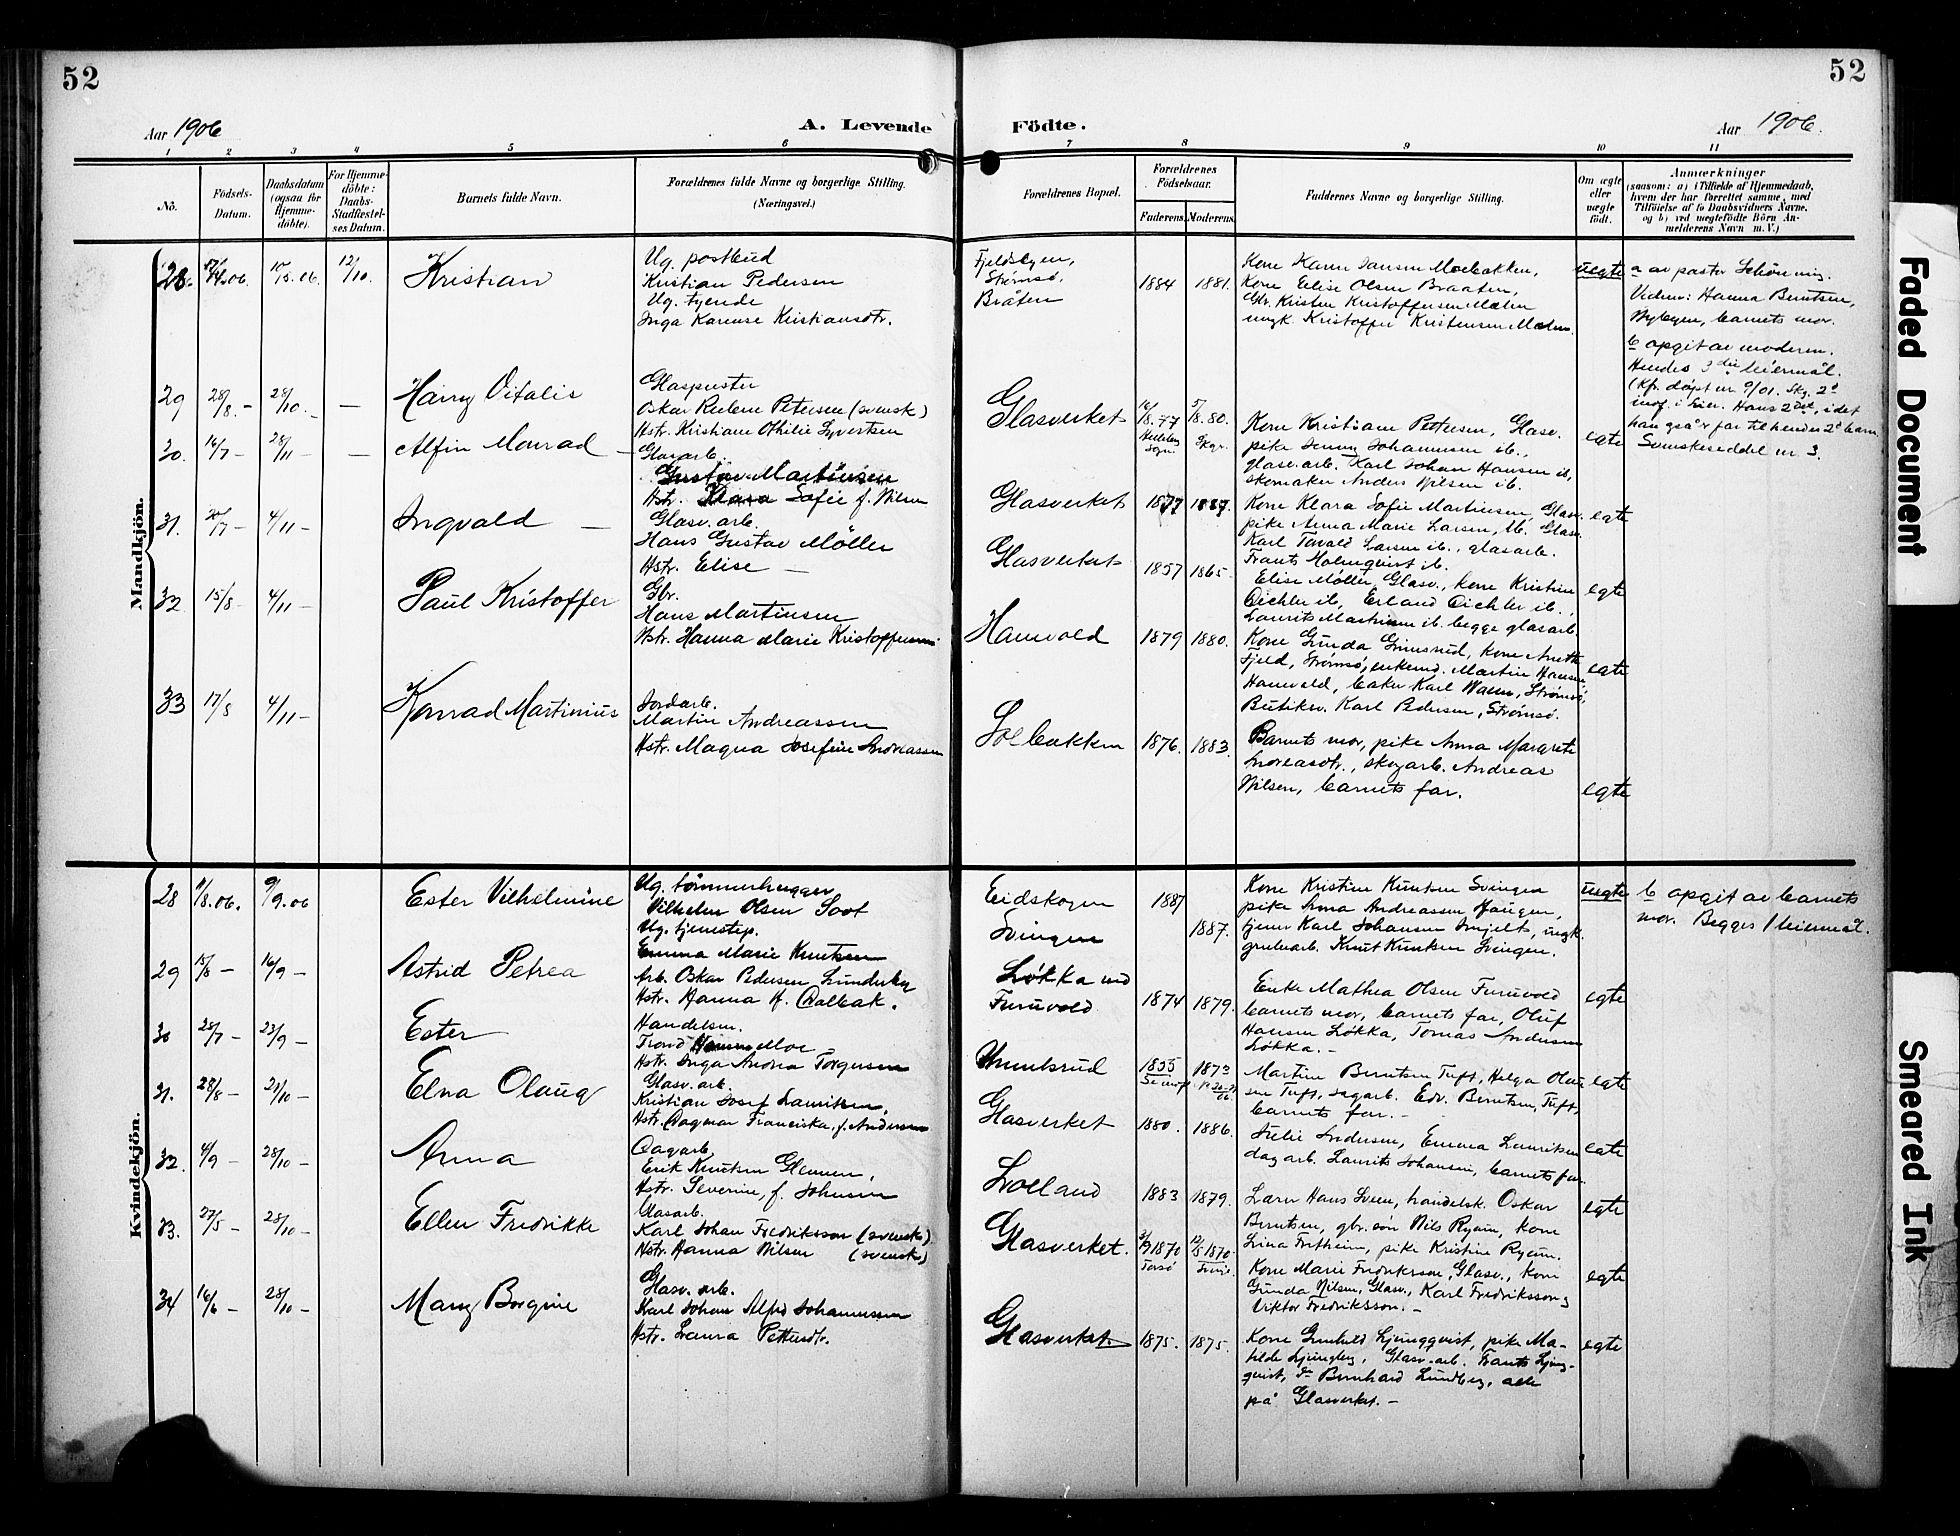 52
52
Aar 1906
A. Levende
Födte.
Aar 1906.
1 2 3 4 5 6 7 8 9 10 11
No.
Födsels-
Datum.
Daabsdatum
(ogsaa for
Hjemme-
döbte).
For Hjemme-
döbte:
Daabs-
Stadfæstel-
ses Datum.
Barnets fulde Navn.
Forældrenes fulde Navne og borgerlige Stilling.
(Næringsvei.)
Forældrenes Bopæl.
Forældrenes
Födselsaar.
Faderens. Moderens.
Faddernes Navne og borgerlige Stilling.
Om ægte
eller
uægte
födt.
Anmærkninger
(saasom: a) i Tilfælde af Hjemmedaab,
hvem der har forrettet samme, med
Tilföielse af to Daabsvidners Navne,
og b) ved uægtefödte Börn An-
melderens Navn m. V.)
Mandkjön.
28. 06. 10/5.06 12/10. Kristian
Ug. postbud
Kristian Pedersen
Ug. tjende
Inga Karense Kristiansdtr.
Fjeldbyen,
Strømsø,
Bråten
1884 1881.
Kone Karen Jansen Moebakken,
Kone Elise Olsen Braaten,
Gbr. Kristen Kristoffersen Mælen
ungk. Kristoffer Kristensen Mælen.
uegte
a av pastor Schöning.
Vidner: Hanna Berntsen,
Nybyen, barnets mor.
b opgit av moderen.
Hendes 3die leiermål.
(Kfr. døpt nr 9/01. Skg. 2d
mof. i Eier. Hans 2det, idet
han også er far til hendes 2d barn
29 28/8.- 28/10.- — Harry Vitalis
Glaspuster
Oskar Petersen (svensk)
Hstr. Kristiane Othilie Syvertsen
Glasverket
16/8.77 5/8.80.
Kone Kristiane Pettersen, Glasv.
pike Jenny Johannesen ib.,
glasv.arb. Karl Johan Hansen ib,
skomaker Anders Nilsen ib.
egte
Svenskeseddel nr 3.
30. 16/7- 28/11 — Alfin Monrad —
Glasarb.
Gustav Martinsen
Hstr. Klara Sofie f. Nilsen
Glasverket 1877 1887.
Kone Klara Sofie Martinsen, Glasv.
pike Anna Marie Larsen, ib. Glasv.
Karl Torvald Larsen ib., glasarb.
Frants Holmqvist ib.
egte
31. 20/7- 4/11- Ingvald —
Glasv. arb.
Hans Gustav Møller
Hstr. Elise —
Glasverket 1857 1865.
Elise Møller, Glasv., kone Kristine
Eichler ib, Erland Eichler ib.,
Laurits Martinsen ib. begge glasarb.
egte
32 15/8- 4/11- Paul Kristoffer
Gbr.
Hans Martinsen
Hstr. Hanna Marie Kristoffersen
Hanevold 1879 1880.
Kone Gunda Grimsrud, kone Anette
Fjeld, Strømsø, enkemd. Martin Hansen
Hanevold, baker Karl Waen, Strømsø,
Butiksv. Karl Pedersen, Strømsø.
egte
33 17/8 4/11- Konrad Martinius
Jordarb.
Martin Andreassen
Hstr. Magna Josefine Andreassen
Solbakken 1876. 1883.
Barnets mor, pike Anna Margrete
Andreasdtr., skogarb. Andreas
Nilsen, barnets far.
egte
Kvindekjön.
28 11/8.06. 9/9.06 Ester Vilhelmine
Ug. tømmerhugger
Vilhelm Olsen Soot
Ug. tjenestep.
Emma Marie Knutsen
Eidskogen
Svingen
1887
1887.
Kone Kristine Knutsen Svingen
pike Anna Andreassen Haugen,
tjener Karl Johansen Smjelt, ungk.
grubearb. Knut Knutsen Svingen.
uegte
b opgit av barnets
mor. Begges 1 leiermål.
29 15/8- 16/9- Astrid Petrea
Arb. Oskar Pedersen Lunderby
Hstr. Hanna H. Dalbak.
Løkka ved
Furuvold
1874 1879.
Enke Mathea Olsen Furuvold
barnets mor, barnets far, Oluf
Hansen Løkka, Tomas Andersen
Løkka.-
egte
30 28/7- 23/9- Ester
Handelsm.
Trond Moe
Hstr. Inga Andrea Torgersen
1855 1873
Martine Berntsen Tuft, Helga Olaug
sen Tuft, sagarb. Edv. Berntsen, Tuft,
barnets far.-
egte
31. 28/8- 21/10- Elna Olaug
Glasv. arb.
Kristian Josef Lauritsen,
Hstr. Dagmar Franciska, f. Andersen
Glasverket 1880. 1886.
Julie Andersen, Emma Lauritsen
dagarb. Laurits Johansen, barnets far.
egte
32. 4/9- 28/10- Anna
Dagarb.
Erik Knutsen Glennen,
Hstr. Severine, f. Johnsen
Loeland 1883 1879.
Lærer Hans Sveen, handelsk. Oskar
Berntsen, gbr.søn Nils Ryum, kone
Lina Fritheim, pike Kristine Ryum.
egte
33. 27/5- 28/10- Ellen Fredrikke
Glasarb.
Karl Johan Fredriksson (svensk)
Hstr. Hanna Nilsen (svensk)
Glasverket.
1870 1870.
Torsö
Kone Marie Fredriksson, Glasv., kone
Gunda Nilsen, Glasv., Karl Fredriksson,
Viktor Fredriksson.-
egte
34 16/6- 28/10- Mary Borgine
Glasv. arb.
Karl Johan Alfred Johannessen
Hstr. Laura Pettersdtr.
Glasverket 1875. 1875.
Kone Gunhild Ljungqvist, pike Ma-
tilde Ljungberg, Glasv. arb. Frants Ljung-
qvist, do Bernhard Lundberg, alle
på Glasverket.-
egte
Faded Document
Smeared Ink